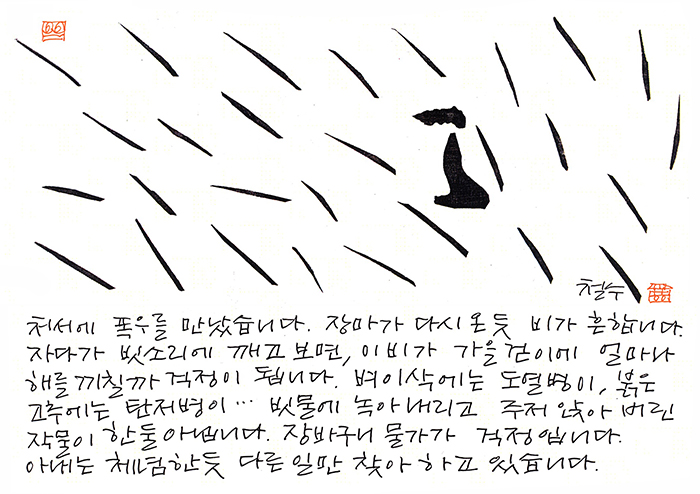 철수
처서에 폭우를 만났습니다. 장마가 다시 온 듯 비가 흔합니다.
자다가 빗소리에 깨고 보면, 이 비가 가을걷이에 얼마나
해를 끼칠까 걱정이 됩니다. 벼이삭에는 도열병이, 붉은
고추에는 탄저병이… 빗물에 녹아내리고 주저 앉아 버린
작물이 한둘 아닙니다. 장바구니 물가가 걱정입니다.
아내는 체념한듯 다른 일만 찾아 하고 있습니다.